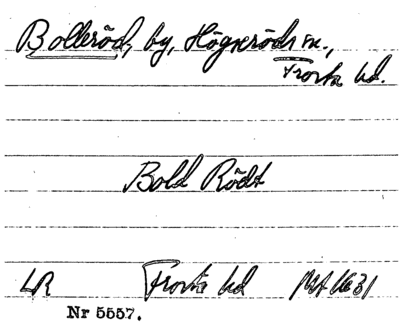 Bolleröd, by, Högseröds sn.,
Frosta hd.
Bold Rödt
LR Frosta hd 1631
Nr 5557.